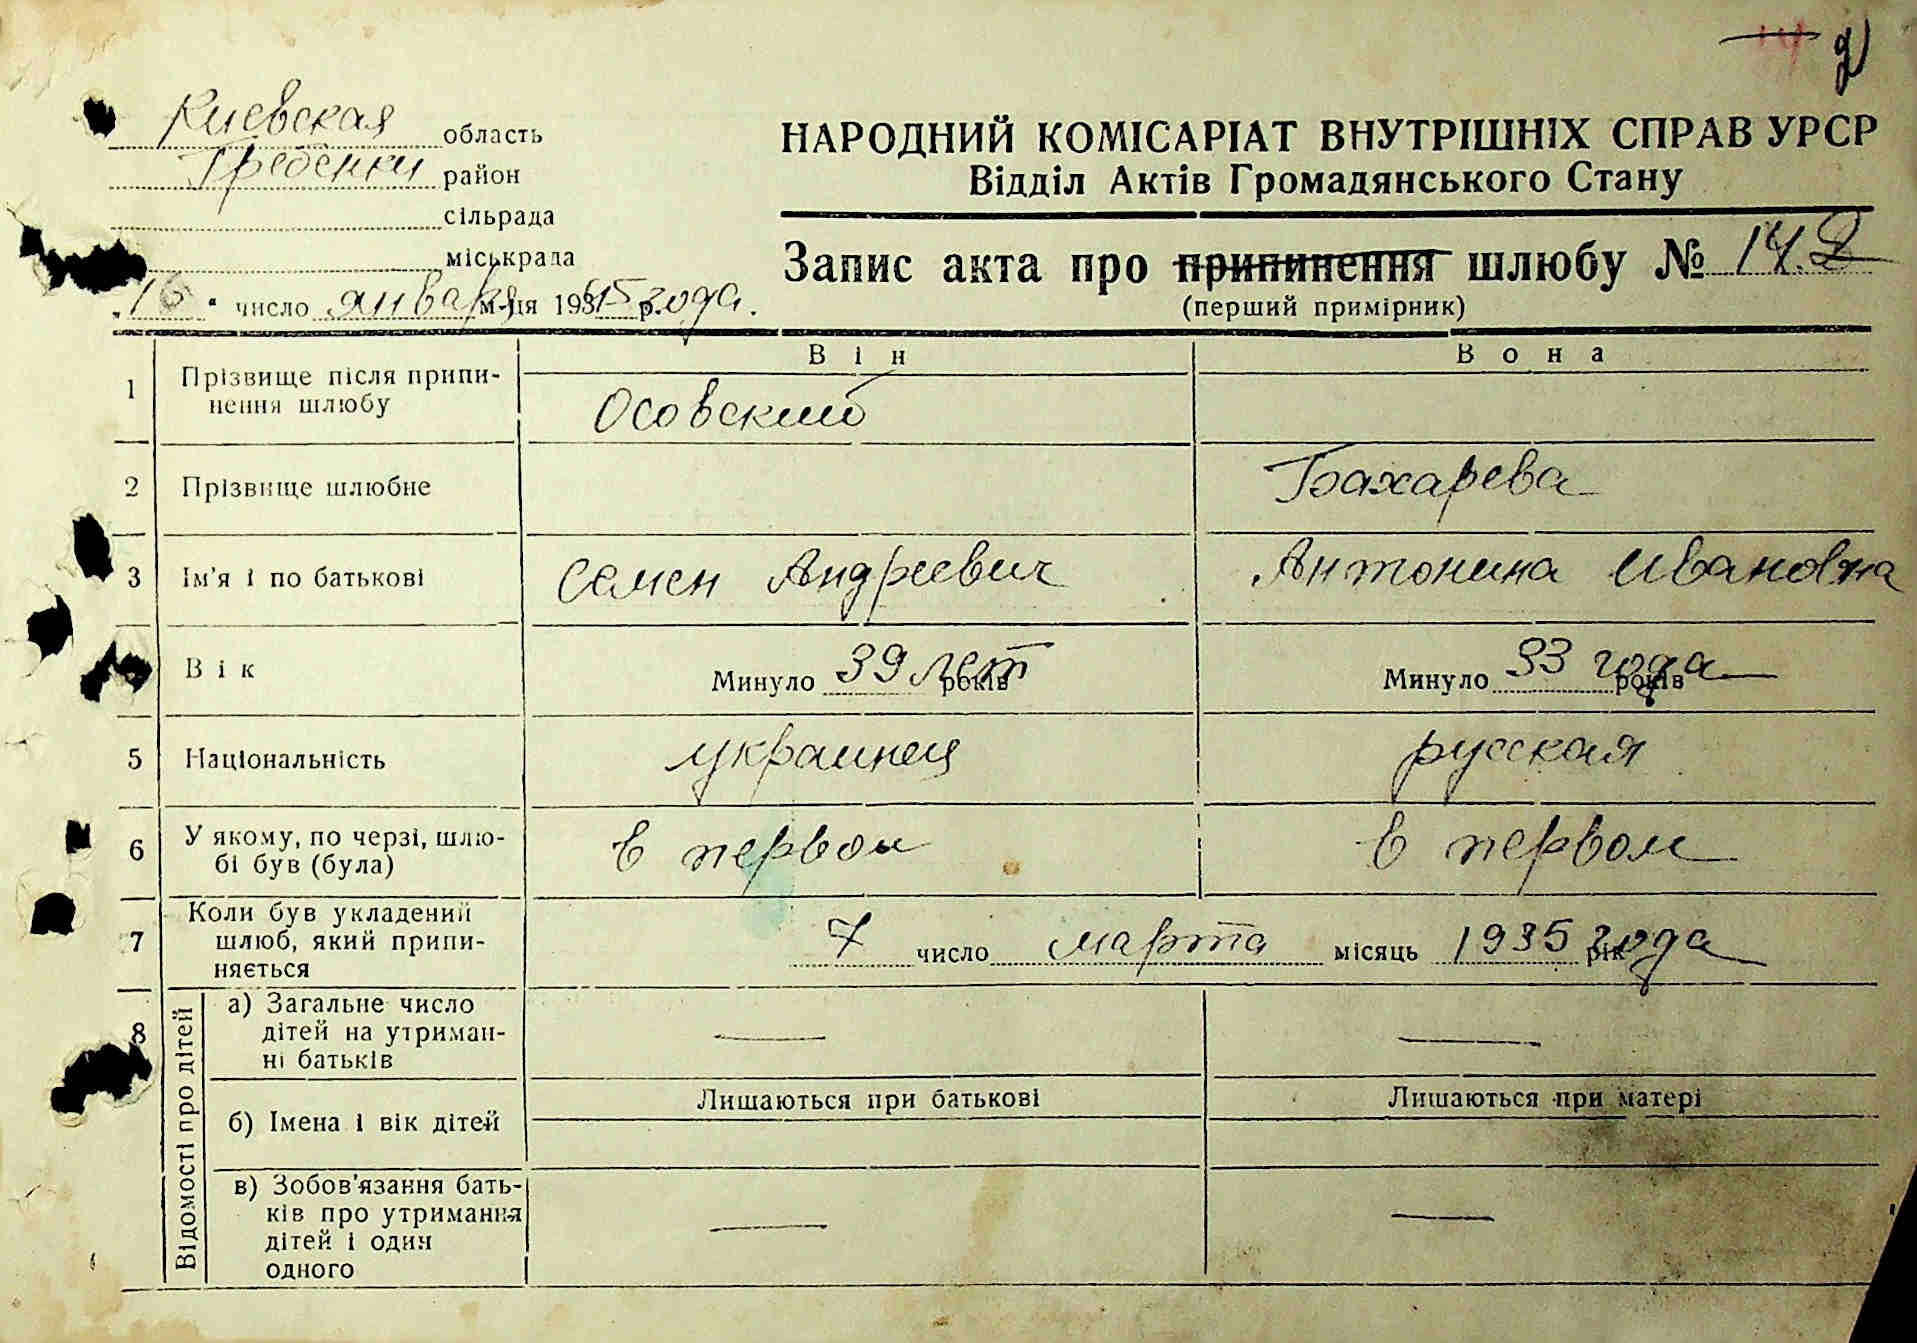 14 2
Киевская область
Гребенки район
сільрада
міськрада
„16“ число января м-ця 1945 р. года.
НАРОДНИЙ КОМІСАРІАТ ВНУТРІШНІХ СПРАВ УРСР
Відділ Актів Громадянського Стану
Запис акта про припинення шлюбу № 14.2
(перший примірник)
Він Вона
1 Прізвище після припи-
нення шлюбу Осовский
2 Прізвище шлюбне Бахарева
3 Ім'я і по батькові Семен Андреевич Антонина Ивановна
4 Вік Минуло 39 лет років Минуло 33 года років
5 Національність украинец русская
6 У якому, по черзі, шлю-
бі був (була) в первом в первом
7 Коли був укладений
шлюб, який припи-
няється 7 число марта місяць 1935 года рік
8 Відомості про дітей
а) Загальне число
дітей на утриман-
ні батьків — —
Лишаються при батькові Лишаються при матері
б) Імена і вік дітей
в) Зобов'язання бать-
ків про утримання
дітей і один
одного — —